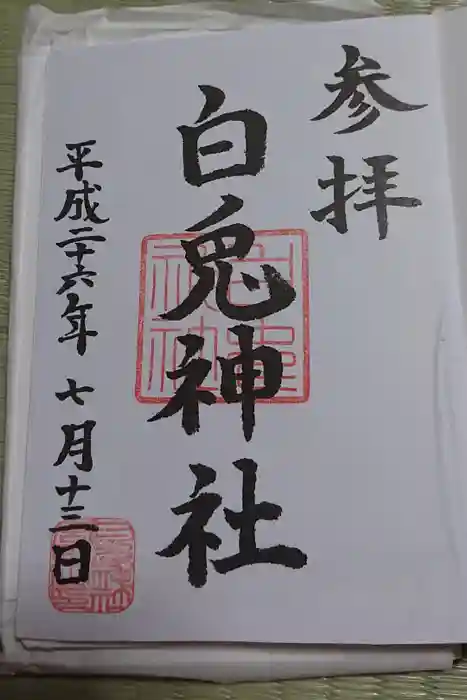 参拝
白兎神社
平成二十六年七月十三日